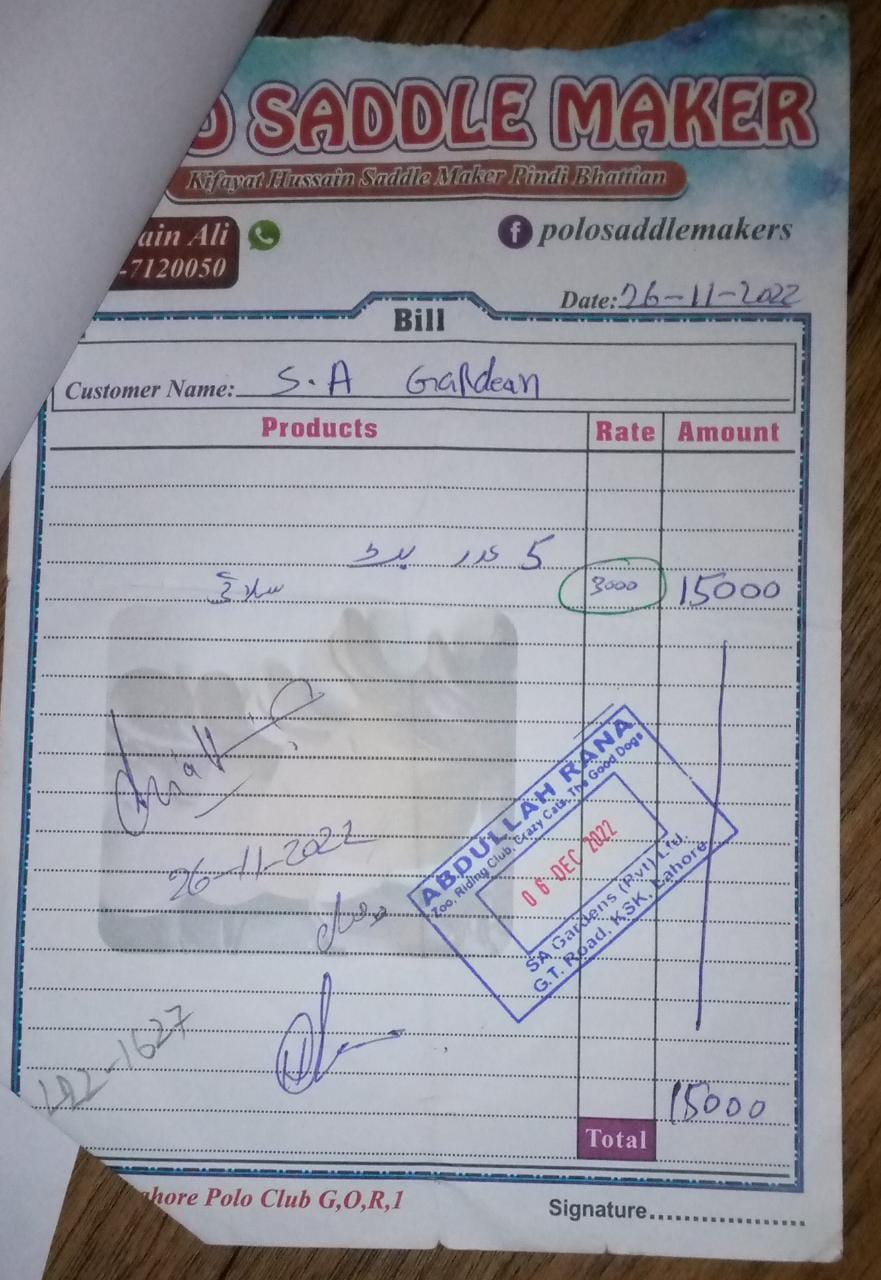 SADDLE MAKER
Kifayat Hussain Saddle Maker Pindi Bhattian
ain Ali
-7120050
polosaddlemakers
Date: 26-11-2022
Bill
Customer Name: S.A Gardean
Products Rate Amount
5 عدد
3000 15000
ABDULLAH RANA
Zoo, Riding Club, Crazy Cats, The Good Dogs
06 DEC 2022
SA Gardens (Pvt) Ltd.
G.T. Road, KSK, Lahore
26-11-2022
15000
Total
ahore Polo Club G,O,R,1
Signature